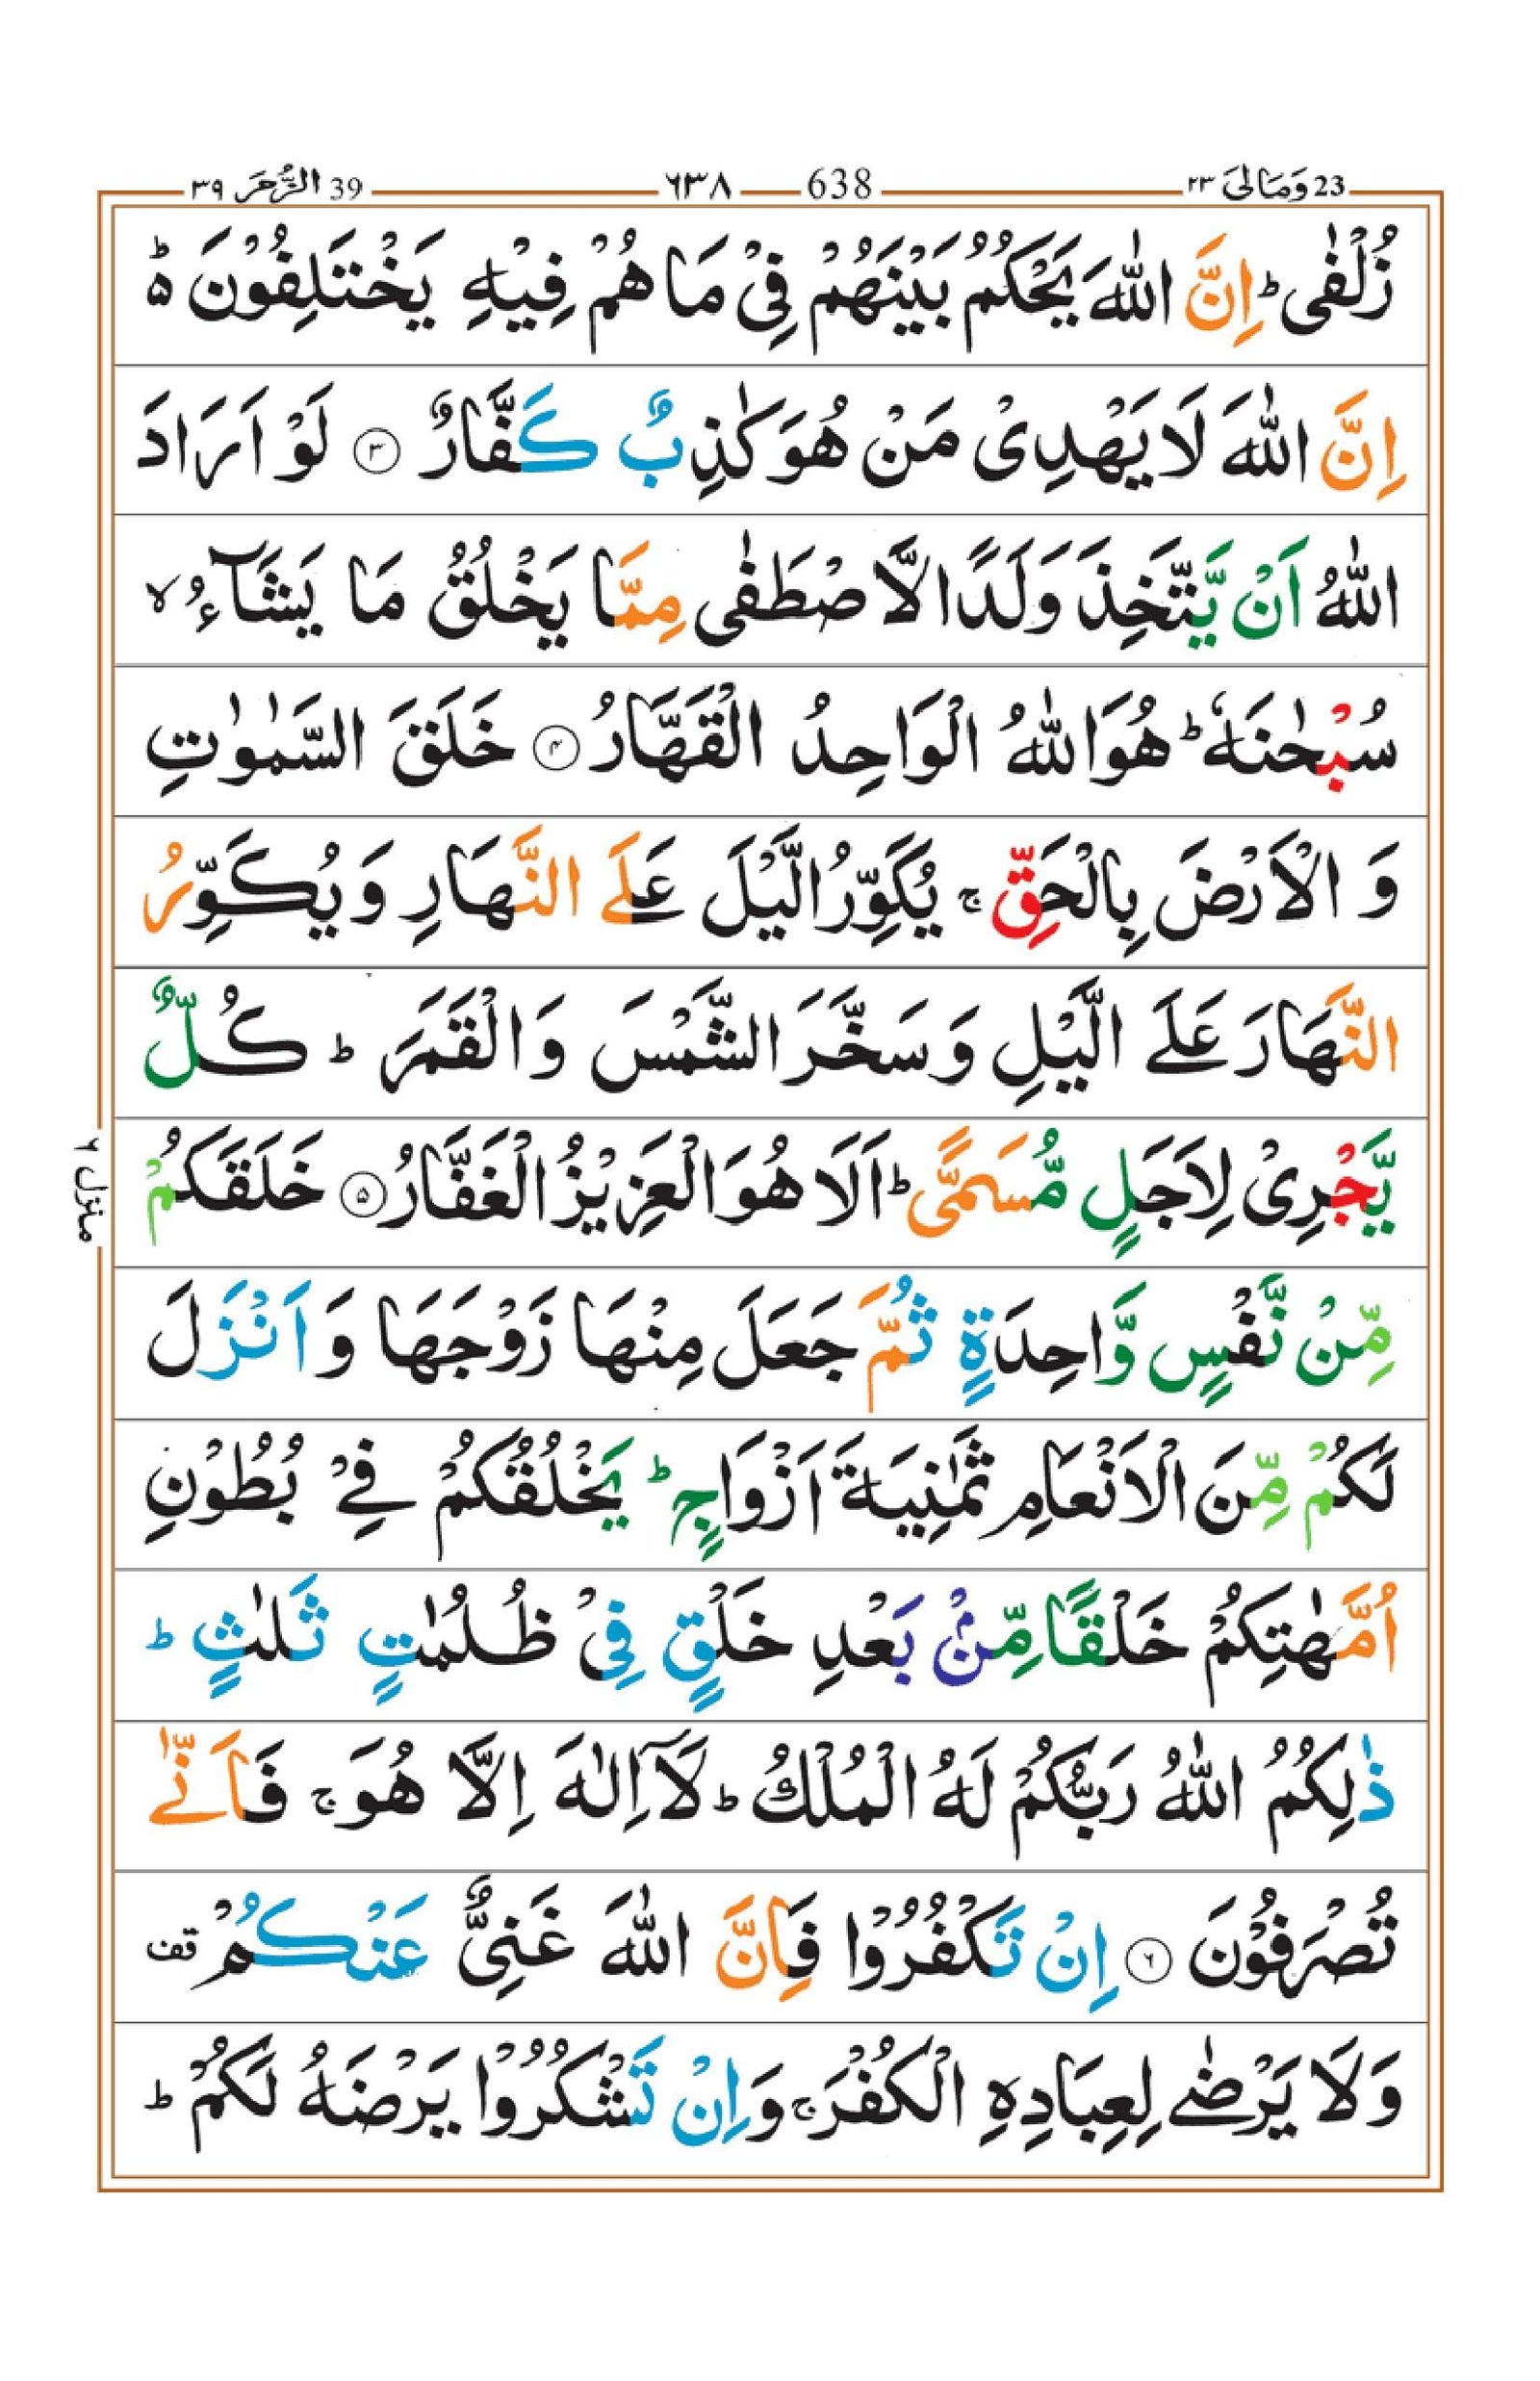 23 وَمَالِىَ ٢٣ 638 ٦٣٨ 39 الزُّمَر ٣٩
زُلْفٰى ؕ اِنَّ اللّٰهَ يَحْكُمُ بَيْنَهُمْ فِىْ مَا هُمْ فِيْهِ يَخْتَلِفُوْنَ ؕ۬
اِنَّ اللّٰهَ لَا يَهْدِىْ مَنْ هُوَ كٰذِبٌ كَفَّارٌ ﴿۳﴾ لَوْ اَرَادَ
اللّٰهُ اَنْ يَّتَّخِذَ وَلَدًا الَّاصْطَفٰى مِمَّا يَخْلُقُ مَا يَشَآءُ ۙ
سُبْحٰنَهٗ ؕ هُوَ اللّٰهُ الْوَاحِدُ الْقَهَّارُ ﴿۴﴾ خَلَقَ السَّمٰوٰتِ
وَ الْاَرْضَ بِالْحَقِّ ۚ يُكَوِّرُ الَّيْلَ عَلَى النَّهَارِ وَ يُكَوِّرُ
النَّهَارَ عَلَى الَّيْلِ وَ سَخَّرَ الشَّمْسَ وَ الْقَمَرَ ؕ كُلٌّ
يَّجْرِىْ لِاَجَلٍ مُّسَمًّى ؕ اَلَا هُوَ الْعَزِيْزُ الْغَفَّارُ ﴿۵﴾ خَلَقَكُمْ
مِّنْ نَّفْسٍ وَّاحِدَةٍ ثُمَّ جَعَلَ مِنْهَا زَوْجَهَا وَ اَنْزَلَ
لَكُمْ مِّنَ الْاَنْعَامِ ثَمٰنِيَةَ اَزْوَاجٍ ؕ يَخْلُقُكُمْ فِىْ بُطُوْنِ
اُمَّهٰتِكُمْ خَلْقًا مِّنْۢ بَعْدِ خَلْقٍ فِىْ ظُلُمٰتٍ ثَلٰثٍ ؕ
ذٰلِكُمُ اللّٰهُ رَبُّكُمْ لَهُ الْمُلْكُ ؕ لَاۤ اِلٰهَ اِلَّا هُوَ ۚ فَاَنّٰى
تُصْرَفُوْنَ ﴿۶﴾ اِنْ تَكْفُرُوْا فَاِنَّ اللّٰهَ غَنِىٌّ عَنْكُمْ قف
وَلَا يَرْضٰى لِعِبَادِهِ الْكُفْرَ ۚ وَاِنْ تَشْكُرُوْا يَرْضَهُ لَكُمْ ؕ
منزل ٦